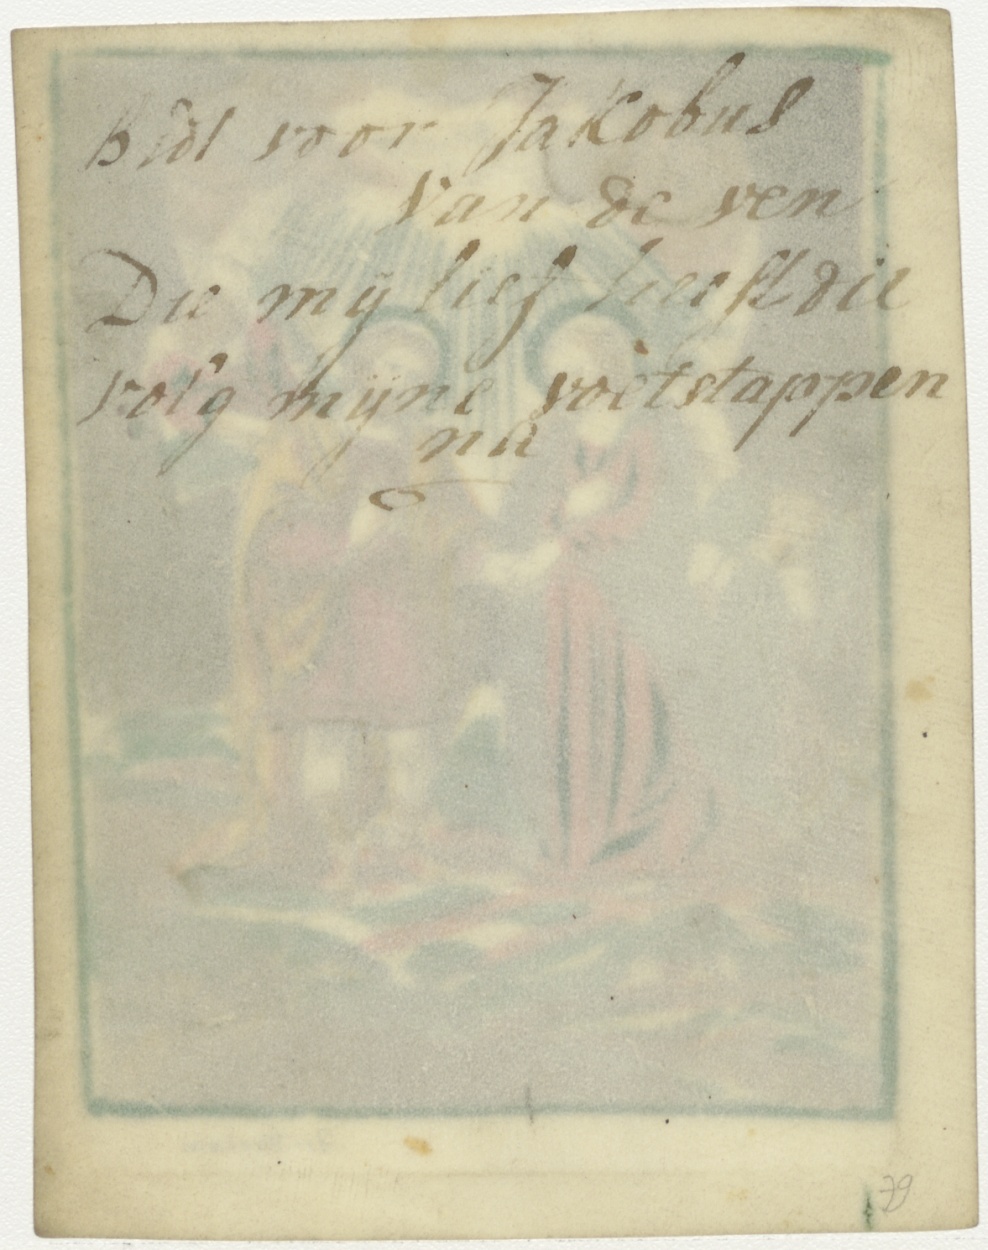 bidt voor Jakobus
van de ven
Die mij lief heeft die
volg mijne voetstappen
na
79